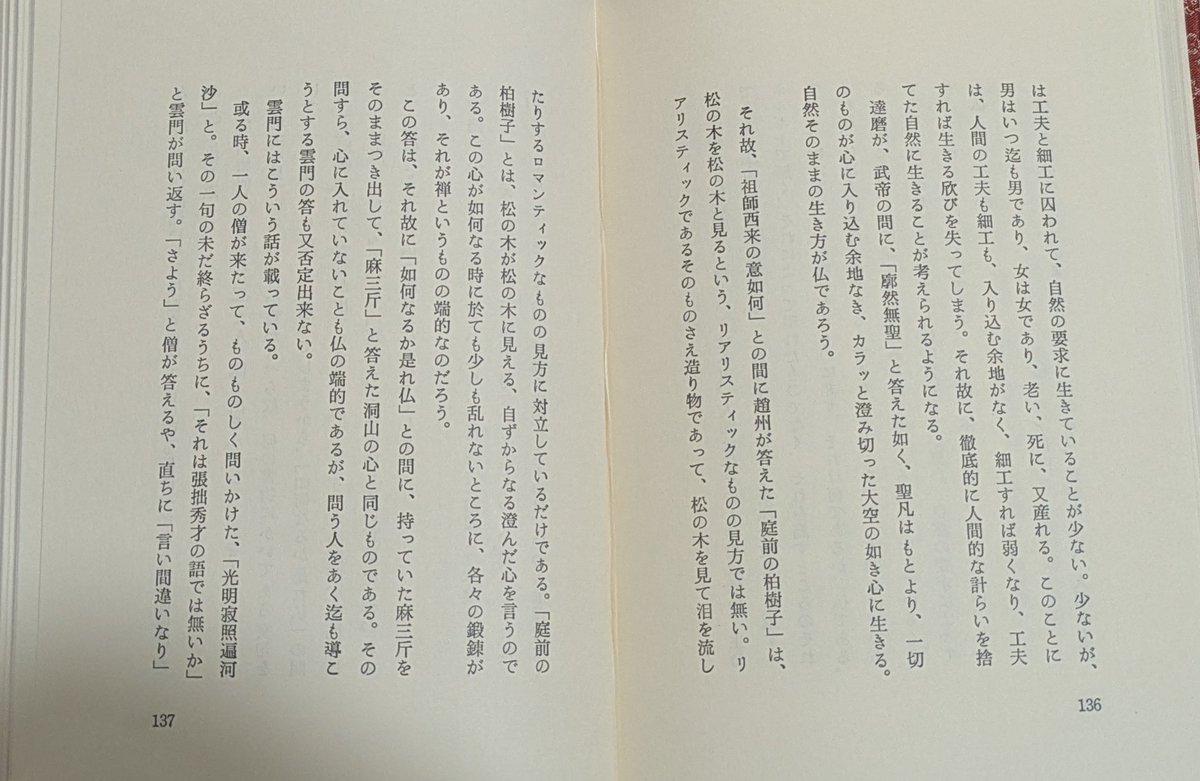 は工夫と細工に囚われて、自然の要求に生きていることが少ない。少ないが、
男はいつ迄も男であり、女は女であり、老い、死に、又産れる。このことに
は、人間の工夫も細工も、入り込む余地がなく、細工すれば弱くなり、工夫
すれば生きる欣びを失ってしまう。それ故に、徹底的に人間的な計らいを捨
てた自然に生きることが考えられるようになる。
達磨が、武帝の問に、「廓然無聖」と答えた如く、聖凡はもとより、一切
のものが心に入り込む余地なき、カラッと澄み切った大空の如き心に生きる。
自然そのままの生き方が仏であろう。
それ故、「祖師西来の意如何」との問に趙州が答えた「庭前の柏樹子」は、
松の木を松の木と見るという、リアリスティックなものの見方では無い。リ
アリスティックであるそのものさえ造り物であって、松の木を見て泪を流し
136
たりするロマンティックなものの見方に対立しているだけである。「庭前の
柏樹子」とは、松の木が松の木に見える、自ずからなる澄んだ心を言うので
ある。この心が如何なる時に於ても少しも乱れないところに、各々の鍛錬が
あり、それが禅というものの端的なのだろう。
この答は、それ故に「如何なるか是れ仏」との問に、持っていた麻三斤を
そのままつき出して、「麻三斤」と答えた洞山の心と同じものである。その
問すら、心に入れていないことも仏の端的であるが、問う人をあく迄も導こ
うとする雲門の答も又否定出来ない。
雲門にはこういう話が載っている。
或る時、一人の僧が来たって、ものものしく問いかけた、「光明寂照遍河
沙」と。その一句の未だ終らざるうちに、「それは張拙秀才の語では無いか」
と雲門が問い返す。「さよう」と僧が答えるや、直ちに「言い間違いなり」
137